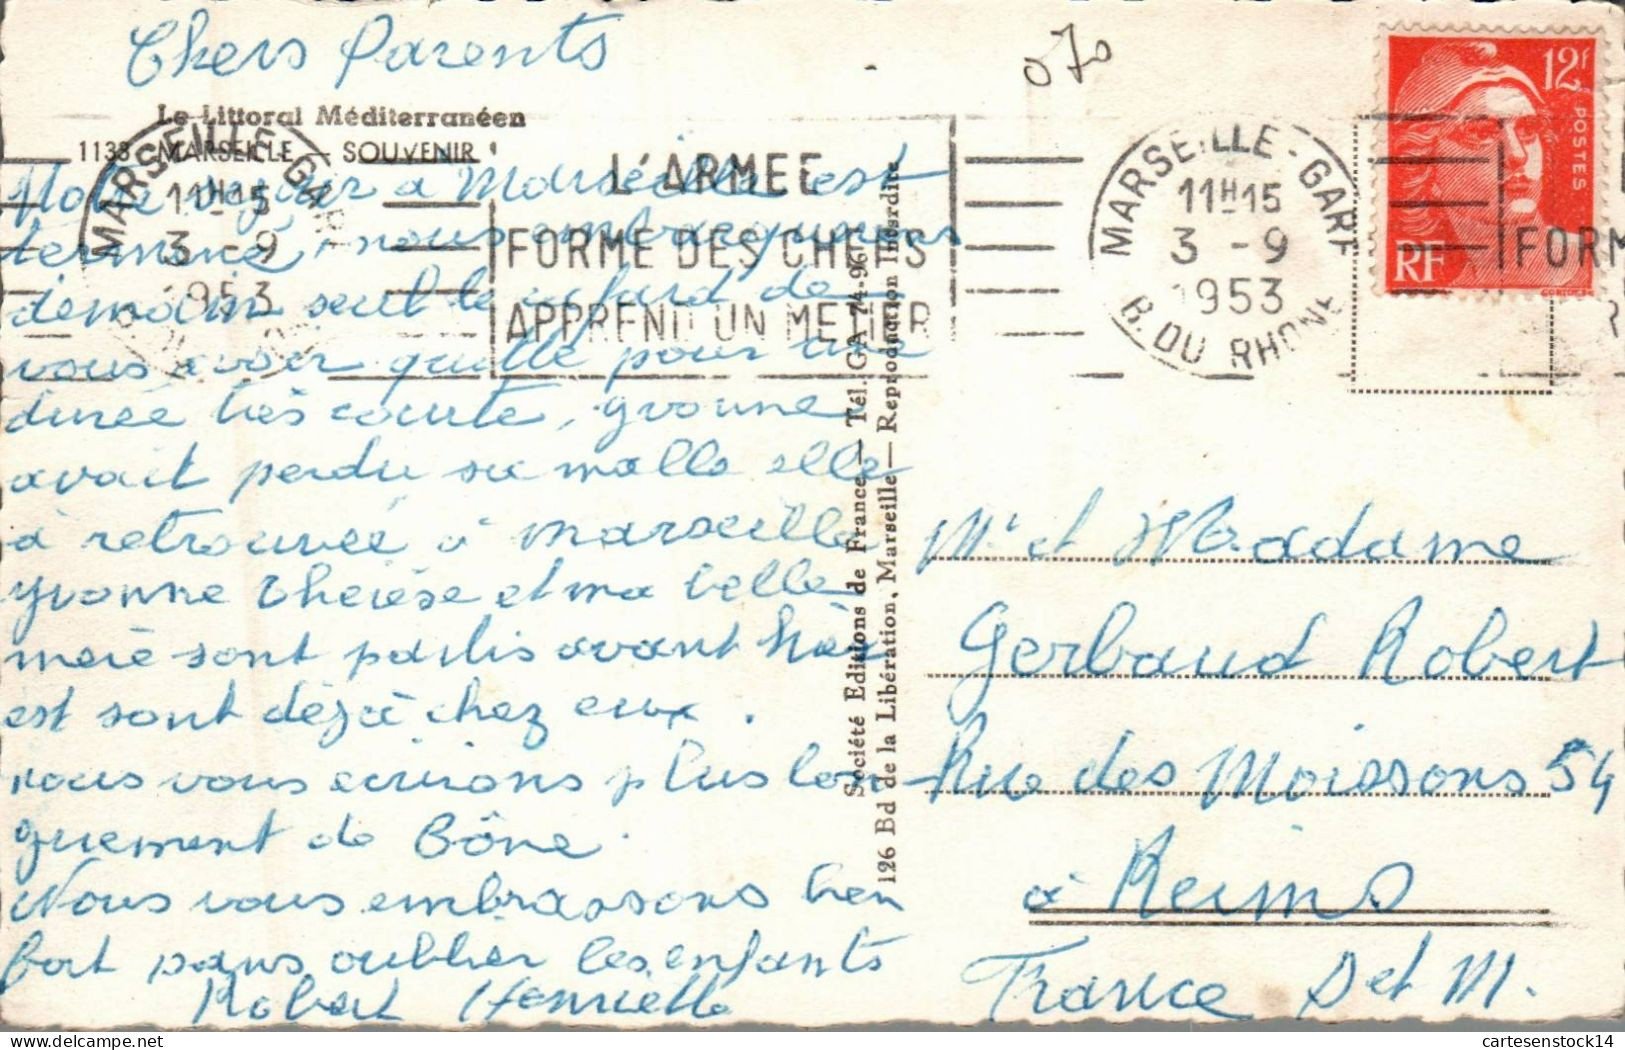 Chers Parents
070
Le Littoral Méditerranéen
1133 MARSEILLE - SOUVENIR
MARSEILLE-GARE
11H15
3 - 9
1953
L'ARMEE
FORME DES CHEFS
APPREND UN METIER
MARSEILLE-GARE
11H15
3 - 9
1953
B. DU RHONE
12F
POSTES
RF
FORM
Notre séjour à Marseille est
terminé, nous embarquons
demain seul le cafard de
vous avoir quitté pour une
durée très courte, yvonne
avait perdu sa malle elle
à retrouvée à Marseille
yvonne Thérèse et ma belle
mère sont partis avant hier
est sont déjà chez eux.
nous vous ecrirons plus lon-
guement de Bône.
Nous vous embrassons bien
fort sans oublier les enfants
Robert Henriette
Société Editions de France — Tél. GA 74-96
126 Bd de la Libération, Marseille — Reproduction Interdite
Mr et Madame
Gerbaud Robert
Rue des Moissons 54
à Reims
France Set M.
cartesenstock14